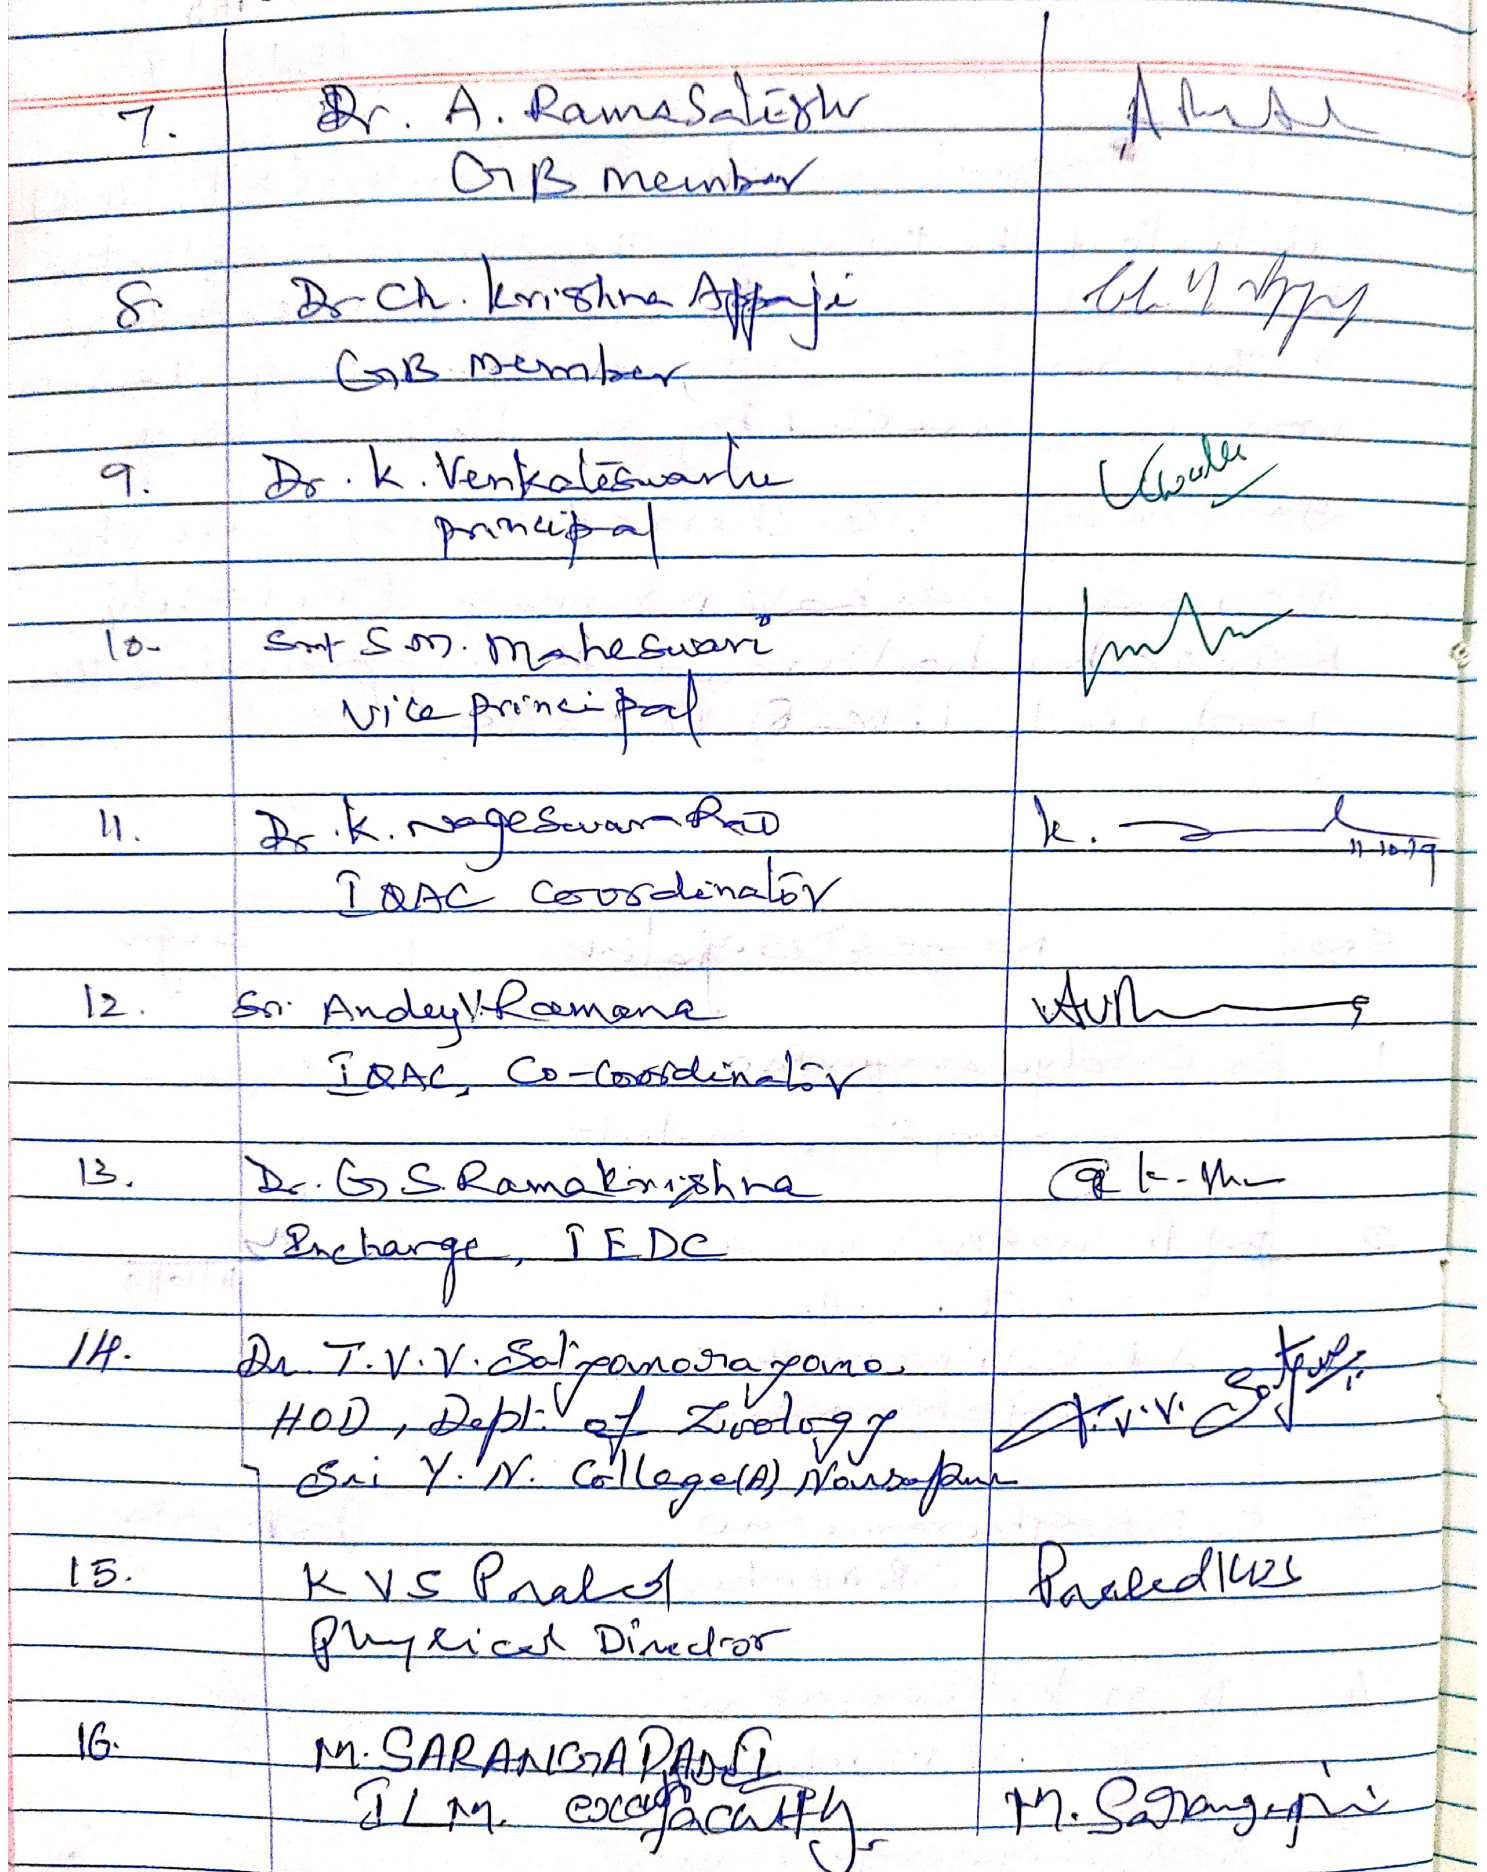 7. Dr. A. Rama Satish
GB member
8. Dr Ch. Krishna Appaji
GB member
9. Dr. K. Venkateswarlu
principal
10. Smt S.M. Maheswari
Vice principal
11. Dr. K. Nageswara Rao K.
11-10-19
IQAC Coordinator
12. Sri Andey V. Ramana
IQAC, Co-Coordinator
13. Dr. G S. Ramakrishna
Incharge, IEDC
14. Dr T.V.V. Satyanarayana
HOD, Dept. of Zoology T.V.V.
Sri Y. N. College (A) Narsapur
15. K V S
Physical Director
16. M. SARANGAPANI
faculty M. Sarangapani